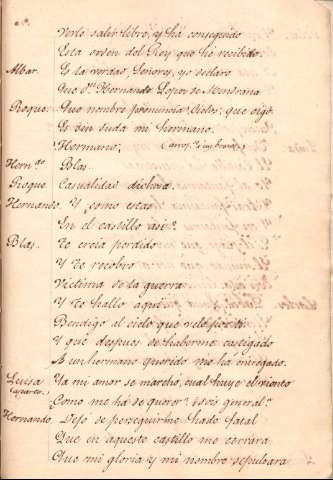 Verlo salir libre, y há conseguido
Esta orden del Rey que hé recibido.
Albar. Es la verdad, Señores, yo declaro
Que D.n Hernando Lopez de Mendrana
Roque. Que nombre pronuncia, Cielos, que oigo
Es sin duda mi hermano.
Hermano,
Hern.do Blas.
Roque Casualidad dichosa
Hernando. Y como estas
En el castillo asi?
Blas. Te creia perdido
Y te recobro
Victima de la guerra
Y te hallo aqui
Bendigo al cielo que
Y que despues de haberme castigado
A un hermano querido me há entregado.
Luisa Ya mi amor se marchó, cual huye el viento
(aparte) Como me há de querer? si es general?
Hernando. Dejó de perseguirme hado fatal
Que en aqueste castillo me cerrára
Que mi gloria y mi nombre sepultara